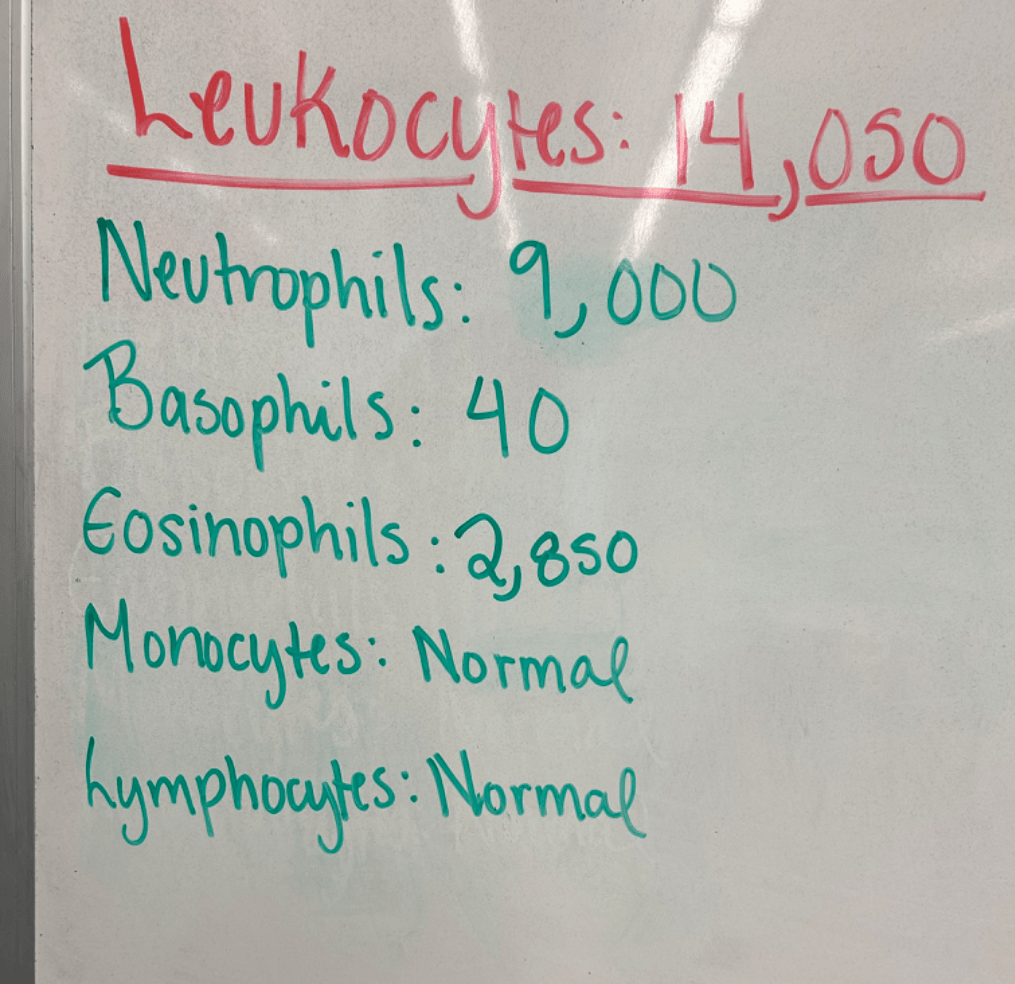 Leukocytes: 14,050
Neutrophils: 9,000
Basophils: 40
Eosinophils: 2,850
Monocytes: Normal
Lymphocytes: Normal